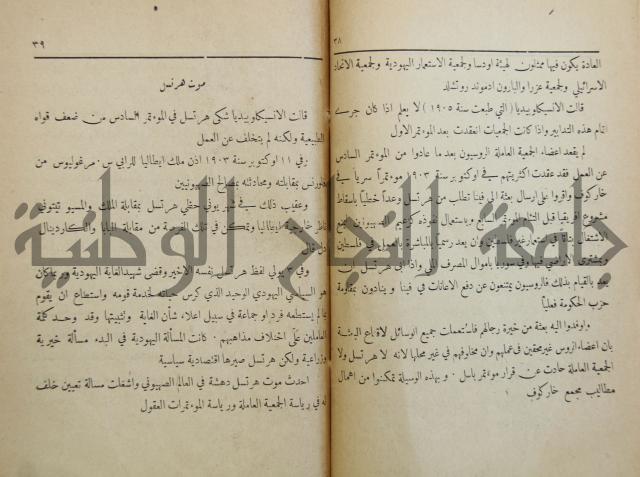 ٣٨
العادة يكون فيها ممثلون لهيئة اودسا ولجمعية الاستعمار اليهودية ولجمعية الاتحاد
الاسرائيلي ولجمعية عزرا والبارون ادموند روتشلد
قالت الانسيكلوبيديا ( التي طبعت سنة ١٩٠٥ ) لا يعلم اذا كان جرى
اتمام هذه التدابير واذا كانت الجمعيات انعقدت بعد المؤتمر الاول
لم يقعد اعضاء الجمعية العاملة الروسيون بعد ما عادوا من المؤتمر السادس
عن العمل فقد عقدت اكثريتهم في اوكتوبر سنة ١٩٠٣ مؤتمراً سرياً في
خاركوف واقروا على ارسال بعثة الى فينا تطلب من هرتسل وعداً خطياً باسقاط
مشروع افريقيا قبل التئام المؤتمر السابع
الاشغال في استعمار غير فلسطين وان يعد رسمياً بالمباشرة بالعمل في فلسطين
وبمشترى الاراضي فيها وفي سوريا باموال المصرف الملي واذا ابى هرتسل ان
يعد بالقيام بذلك فالروسيون يمتنعون عن دفع الاعانات في فينا و ينادون بمقاومة
حزب الحكومة فعلياً
واوفدوا اليه بعثة من خيرة رجالهم فاستعملت جميع الوسائل لاقناع البعثة
بان اعضاء الروس غير محقين في عملهم وان مخاوفهم في غير محلها لانه لا هرتسل ولا
الجمعية العاملة حادت عن قرار مؤتمر باسل . و بهذه الوسيلة تمكنوا من اهمال
مطاليب مجمع خاركوف
٣٩
موت هرتسل
قالت الانسيكلوبيديا شكى هرتسل في المؤتمر السادس من ضعف قواه
الطبيعية ولكنه لم يتخلف عن العمل
في ١١ اوكتوبر سنة ١٩٠٣ اذن ملك ايطاليا للرابي س . مرغوليوس من
فلورنس بمقابلته ومحادثته بمصالح الصهيونيين
وعقيب ذلك في شهر يوني حظي هرتسل بمقابلة الملك والمسيو تيتوني
ناظر خارجية ايطاليا وتمكن في تلك الفرصة من مقابلة البابا والكاردينال
دل فال
وفي ٣ يولي لفظ هرتسل نفسه الاخير وقضى شهيد الغاية اليهودية وربما كان
هو السياسي اليهودي الوحيد الذي كرس حياته لخدمة قومه واستطاع ان يقوم
بما لم يستطعه فرد او جماعة في سبيل اعلاء شأن الغاية وتثبيتها وقد وحد كلمة
العاملين على اختلاف مذاهبهم . كانت المسألة اليهودية في البدء مسألة خيرية
وزراعية ولكن هرتسل صيرها اقتصادية سياسية
احدث موت هرتسل دهشة في العالم الصهيوني واشغلت مسالة تعيين خلف
له في رياسة الجمعية العاملة ورياسة المؤتمرات العقول
جامعة النجاح الوطنية